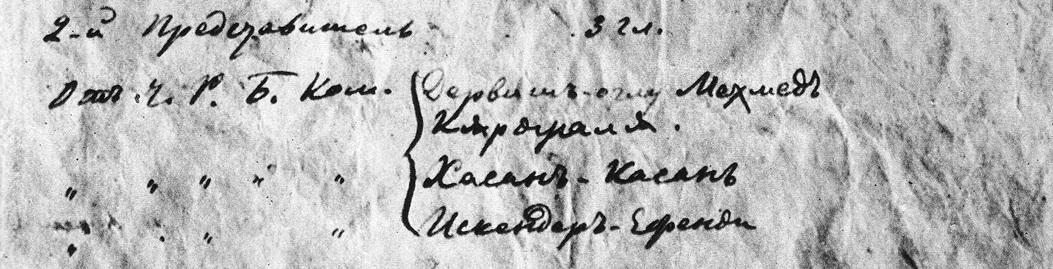 2-й Представитель 3 гл.
Отъ Ч. Р. Б. Ком. { Дервишъ-оглу Мехмедъ
Кяроғаля.
„ „ „ „ „ Хасанъ-Касанъ
„ . „ „ Искендеръ-Ефенди
„